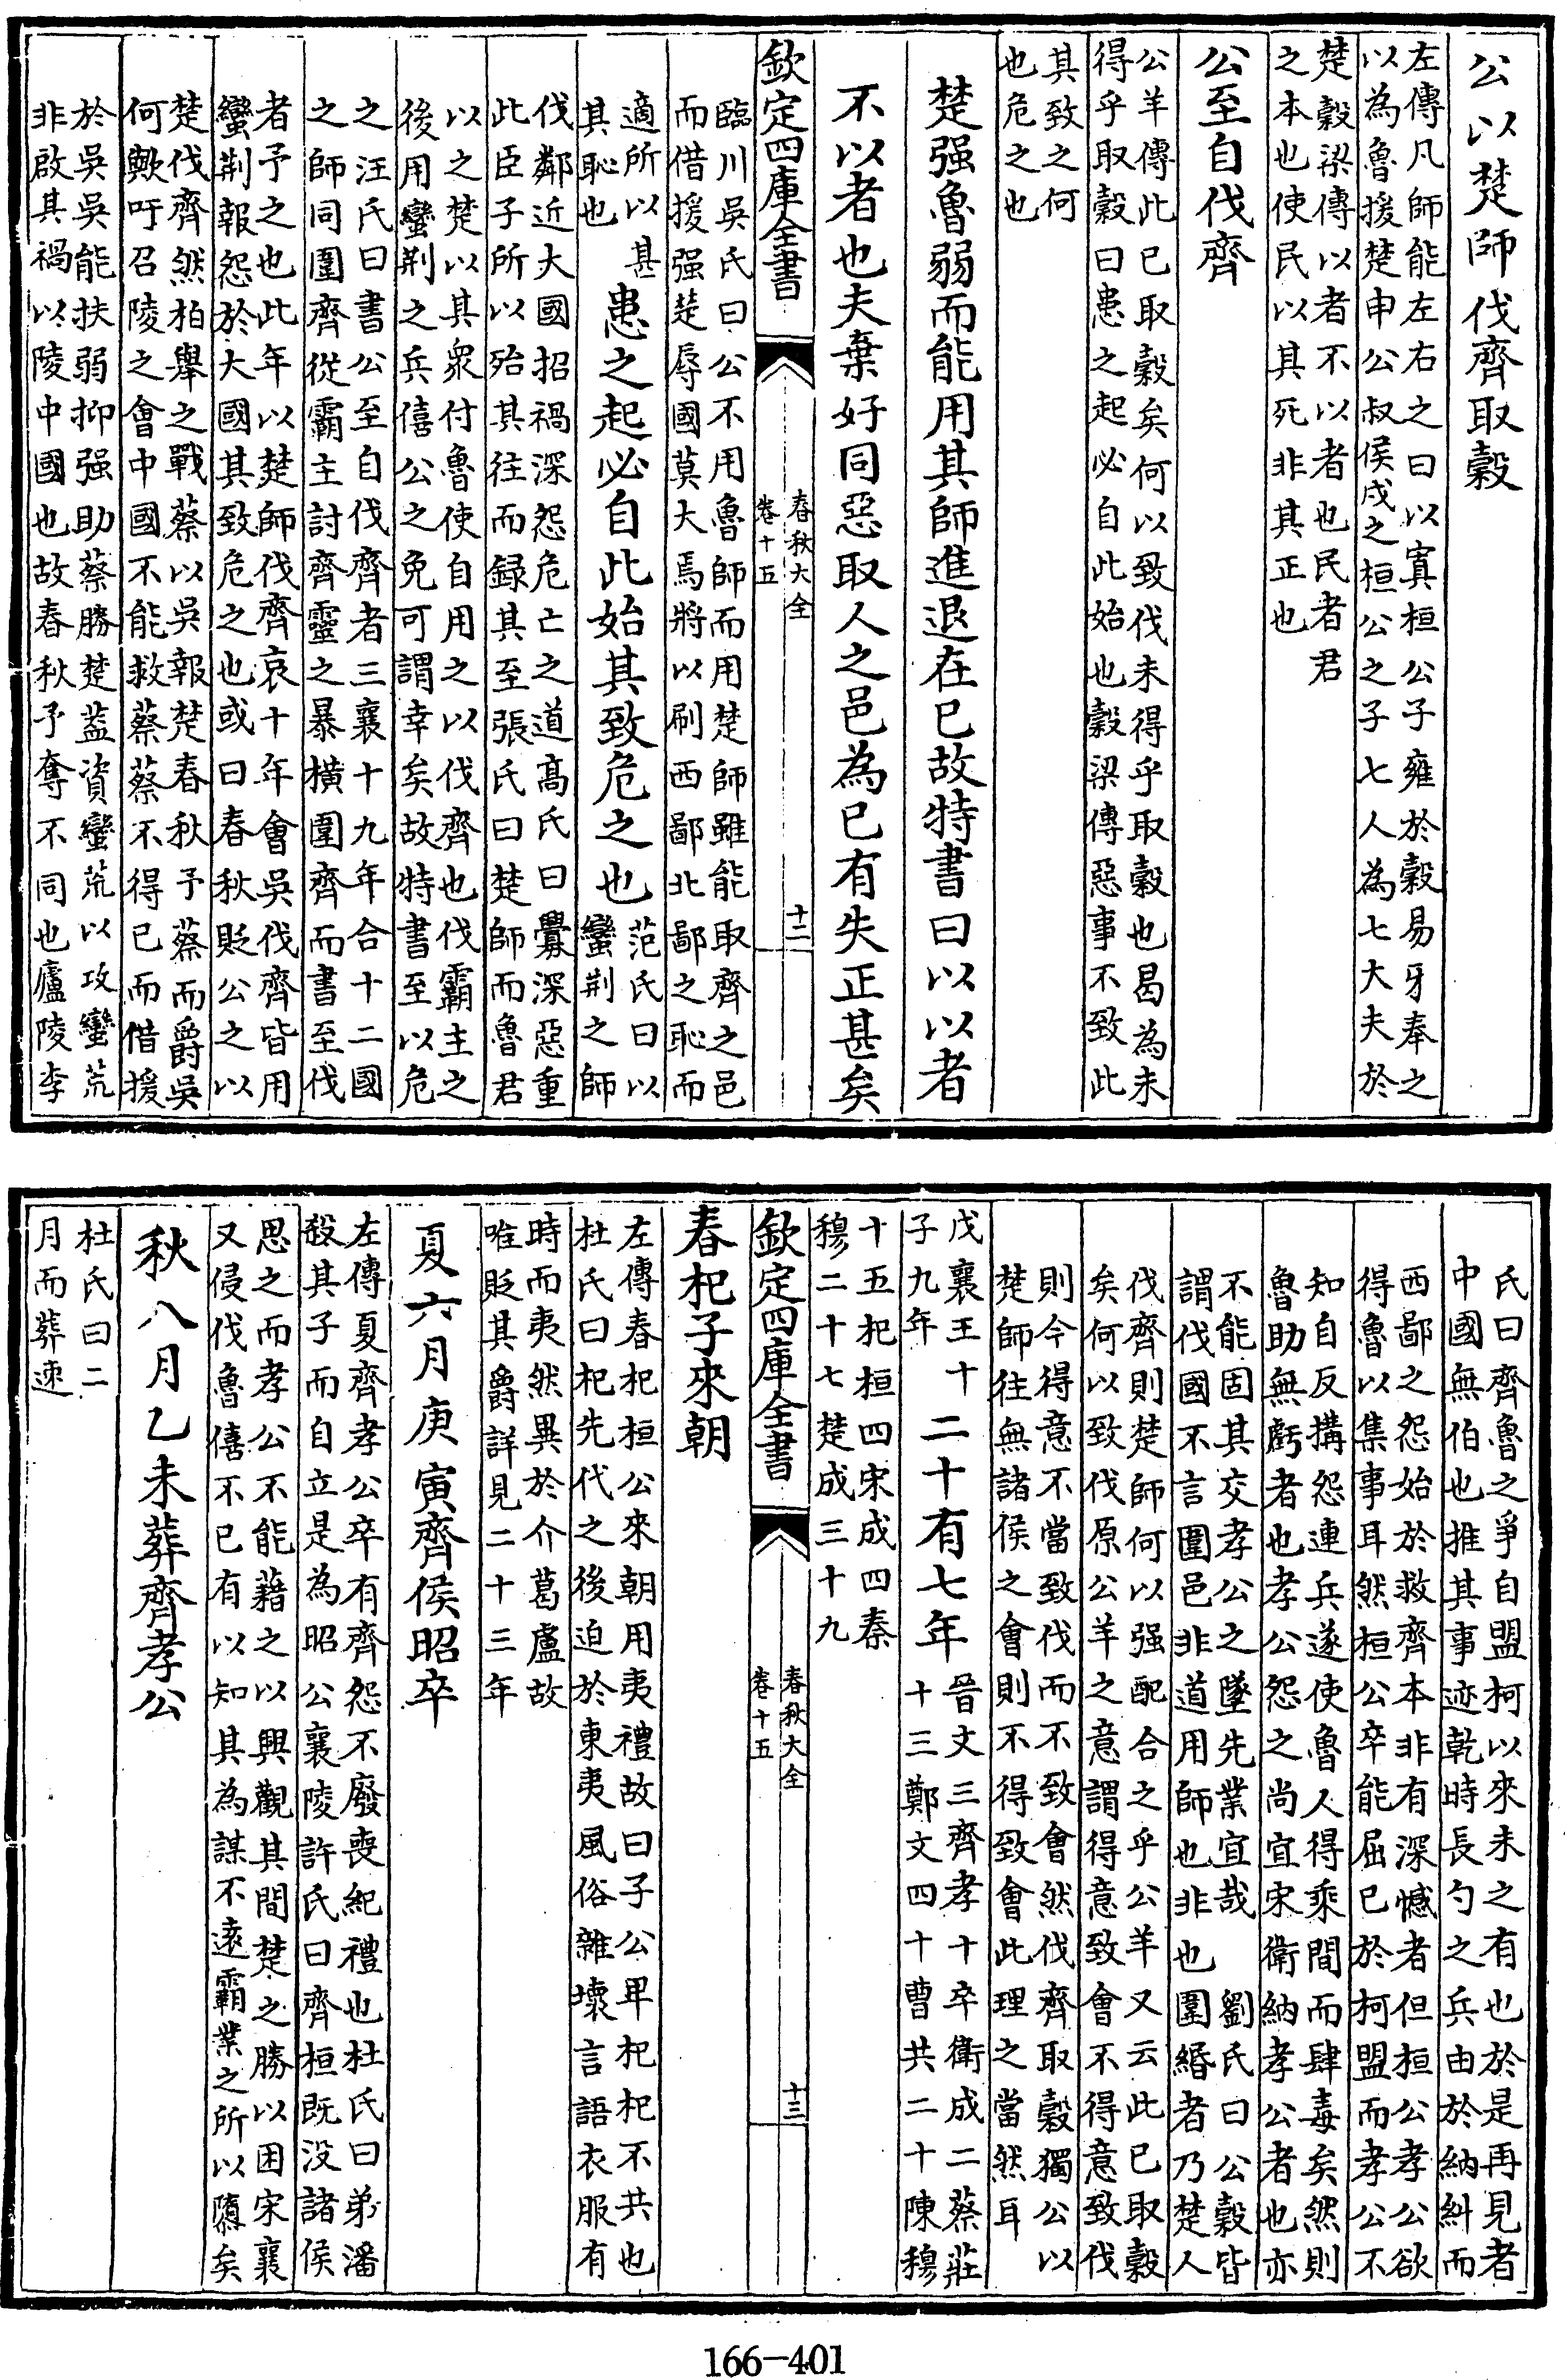 公以楚師伐齊取穀
左傳凡師能左右之曰以寘桓公子雍於穀易牙奉之
以為魯援楚申公叔侯戍之桓公之子七人為七大夫於
楚穀梁傳以者不以者也民者君
之本也使民以其死非其正也
公至自伐齊
公羊傳此已取穀矣何以致伐未得乎取穀也曷為未
得乎取穀曰患之起必自此始也穀梁傳惡事不致此
其致之何
也危之也
楚强魯弱而能用其師進退在已故特書曰以以者
不以者也夫棄好同惡取人之邑為已有失正甚矣
欽定四庫全書
春秋大全
卷十五
十二
臨川吳氏曰公不用魯師而用楚師雖能取齊之邑
而借援强楚辱國莫大焉將以刷西鄙北鄙之恥而
適所以甚
其恥也
患之起必自此始其致危之也
范氏曰以
蠻荆之師
伐鄰近大國招禍深怨危亡之道高氏曰釁深惡重
此臣子所以殆其往而録其至張氏曰楚師而魯君
以之楚以其衆付魯使自用之以伐齊也伐霸主之
後用蠻荆之兵僖公之免可謂幸矣故特書至以危
之汪氏曰書公至自伐齊者三襄十九年合十二國
之師同圍齊從霸主討齊靈之暴横圍齊而書至伐
者予之也此年以楚師伐齊哀十年會吳伐齊皆用
蠻荆報怨於大國其致危之也或曰春秋貶公之以
楚伐齊然柏舉之戰蔡以吳報楚春秋予蔡而爵吳
何歟吁召陵之會中國不能救蔡蔡不得已而借援
於吳吳能扶弱抑强助蔡勝楚葢資蠻荒以攻蠻荒
非啟其禍以陵中國也故春秋予奪不同也廬陵李
氏曰齊魯之爭自盟柯以來未之有也於是再見者
中國無伯也推其事迹乾時長勺之兵由於納糾而
西鄙之怨始於救齊本非有深憾者但桓公孝公欲
得魯以集事耳然桓公卒能屈已於柯盟而孝公不
知自反搆怨連兵遂使魯人得乘間而肆毒矣然則
魯助無虧者也孝公怨之尚宜宋衛納孝公者也亦
不能固其交孝公之墜先業宜哉 劉氏曰公穀皆
謂伐國不言圍邑非道用師也非也圍緡者乃楚人
伐齊則楚師何以强配合之乎公羊又云此已取穀
矣何以致伐原公羊之意謂得意致會不得意致伐
則今得意不當致伐而不致會然伐齊取穀獨公以
楚師往無諸侯之會則不得致會此理之當然耳
戊襄王十
子九年
二十有七年
晉文三齊孝十卒衛成二蔡莊
十三鄭文四十曹共二十陳穆
十五杞桓四宋成四秦
穆二十七楚成三十九
欽定四庫全書
春秋大全
卷十五
十三
春杞子來朝
左傳春杞桓公來朝用夷禮故曰子公卑杞杞不共也
杜氏曰杞先代之後迫於東夷風俗雜壞言語衣服有
時而夷然異於介葛盧故
唯貶其爵詳見二十三年
夏六月庚寅齊侯昭卒
左傳夏齊孝公卒有齊怨不廢喪紀禮也杜氏曰弟潘
殺其子而自立是為昭公襄陵許氏曰齊桓既没諸侯
思之而孝公不能藉之以興觀其間楚之勝以困宋襄
又侵伐魯僖不已有以知其為謀不遠霸業之所以隳矣
秋八月乙未葬齊孝公
杜氏曰二
月而葬速
166-401